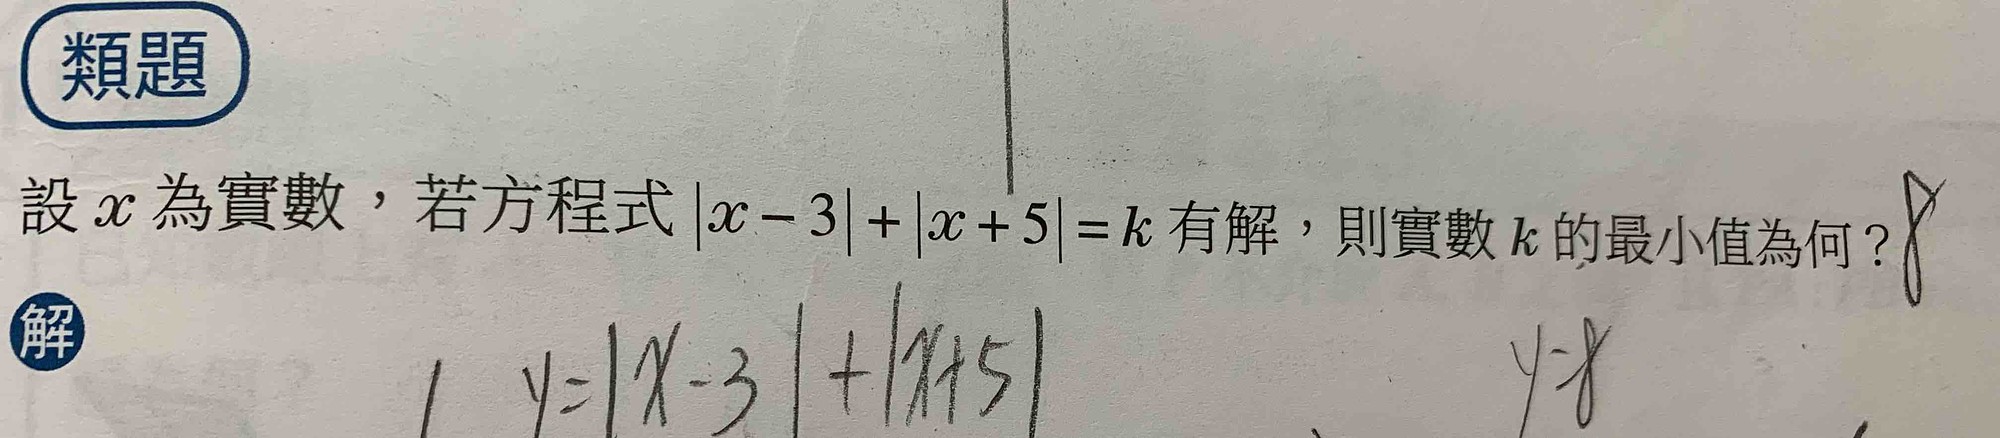 類題
設 x 為實數，若方程式 |x − 3| + |x + 5| = k 有解，則實數 k 的最小值為何？8
解
y=|x-3|+|x+5| y=8